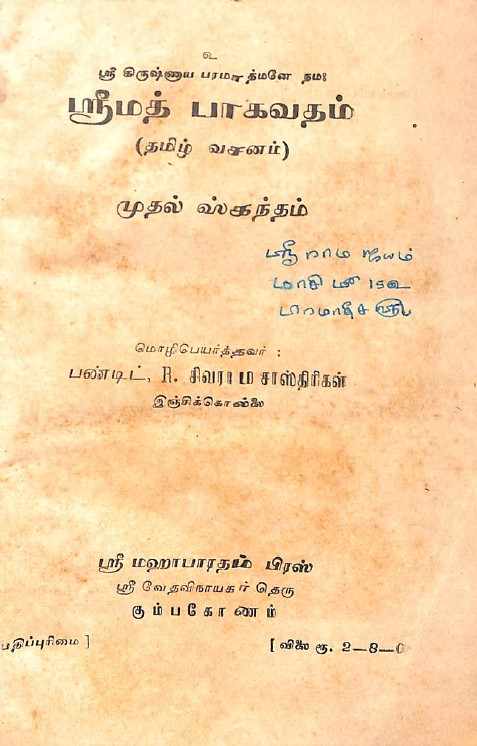 உ
ஸ்ரீ கிருஷ்ணாய பரமாத்மனே நமஃ
ஸ்ரீமத் பாகவதம்
(தமிழ் வசனம்)
முதல் ஸ்கந்தம்
ஸ்ரீ ராம ஜயம்
மாசி மீ
மொழிபெயர்த்தவர் :
பண்டிட், R. சிவராம சாஸ்திரிகள்
இஞ்சிக்கொல்லை
ஸ்ரீ மஹாபாரதம் பிரஸ்
ஸ்ரீ வேதவிநாயகர் தெரு
கும்பகோணம்
பதிப்புரிமை ] [ விலை ரூ. 2—8—0